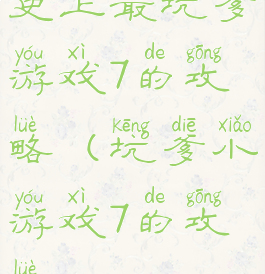 史上最坑爹
yóu xì de gōng
游戏7的攻
lüè kēng diē xiǎo
略（坑爹小
yóu xì de gōng
游戏7的攻
lüè